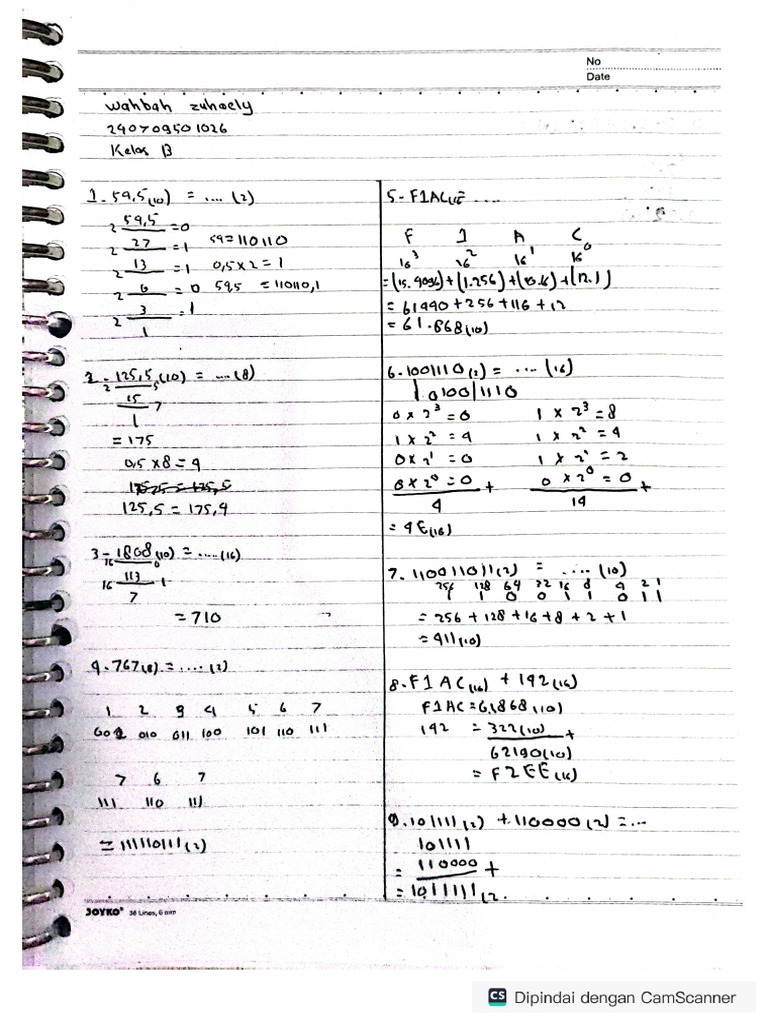 No
Date
Wahbah Zuhaely
240709501026
Kelas B
1. 59,5(10) = .... (2)
2 59,5 = 0
2 27 = 1 59 = 110110
2 13 = 1 0,5 x 2 = 1
2 6 = 0 59,5 = 110110,1
2 3 = 1
1
2. 125,5 (10) = .... (8)
15 7
1
= 175
0,5 x 8 = 4
125,5 = 175,4
3 - 1808 (10) = .....(16)
16 0
16 113 1
7
= 710
4. 767(8) = .... (2)
1 2 3 4 5 6 7
001 010 011 100 101 110 111
7 6 7
111 110 111
= 111110111 (2)
JOYKO® 36 Lines, 6 mm
5 - F1AC(16 = ....
F 1 A C
16³ 16² 16¹ 16⁰
= (15.4096) + (1.256) + (10.16) + (12.1)
= 61440 + 256 + 116 + 12
= 61.868(10)
6. 1001110 (2) = .... (16)
0100/1110
0 x 2³ = 0 1 x 2³ = 8
1 x 2² = 4 1 x 2² = 4
0 x 2¹ = 0 1 x 2¹ = 2
0 x 2⁰ = 0 + 0 x 2⁰ = 0 +
4 14
= 4E(16)
7. 110011011(2) = .... (10)
256 128 64 32 16 8 4 2 1
1 1 0 0 1 1 0 1 1
= 256 + 128 + 16 + 8 + 2 + 1
= 411(10)
8. F1AC(16) + 142(16)
F1AC = 61868(10)
142 = 322(10) +
62190(10)
= F2EE(16)
9. 101111(2) + 110000(2) = ...
101111
= 110000 +
= 1011111(2.
CS Dipindai dengan CamScanner